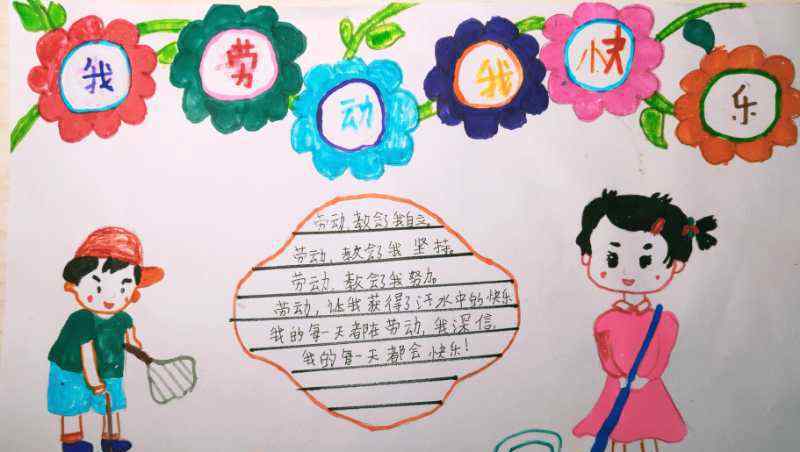 我劳动我快乐
劳动,教会了我自立。
劳动,教会了我坚持。
劳动,教会了我努力。
劳动,让我获得了汗水中的快乐
我的每一天都在劳动,我深信,
我的每一天都会快乐!